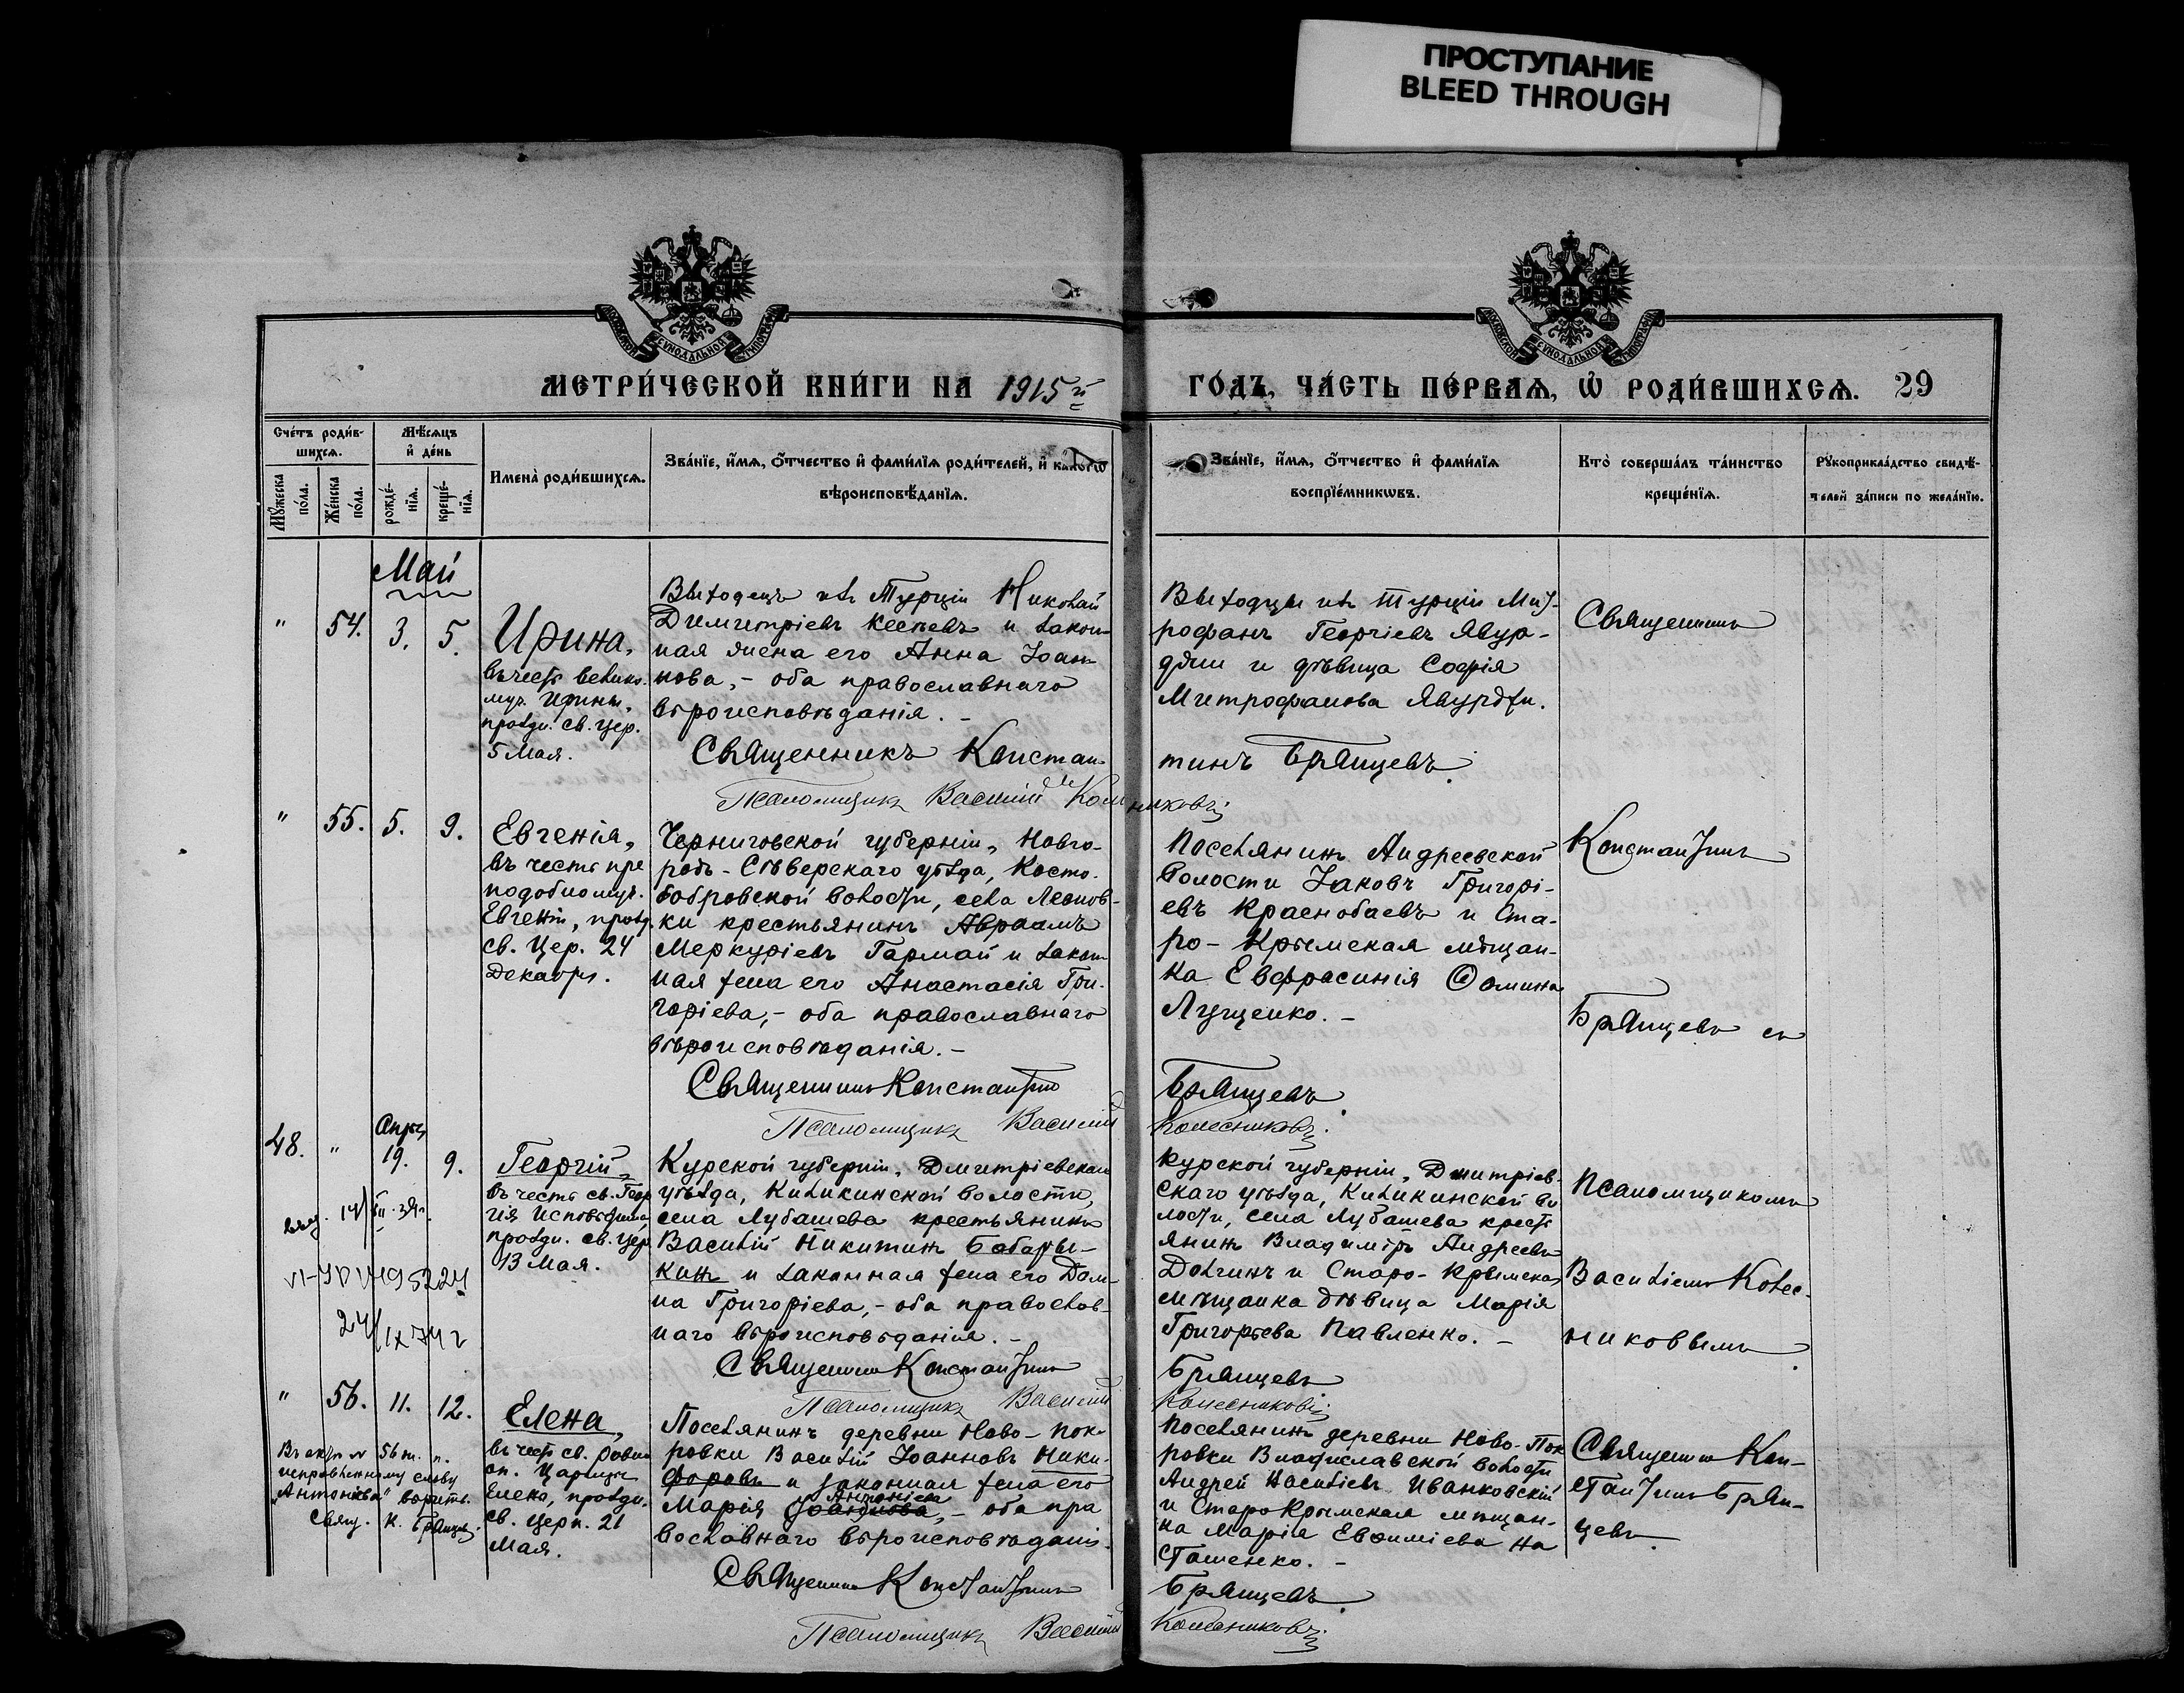 ПРОСТУПАНИЕ
BLEED THROUGH
МЕТРИ́ЧЕСКОЙ КНИ́ГИ НА 1915й
ГО́ДЪ, ЧА́СТЬ ПЕ́РВАѦ, Ѡ РОДИ́ВШИХСѦ. 29
Сче́тъ роди́в-
шихсѧ.
Мѣ́сѧцъ
и҆ де́нь
Мꙋ́жеска
по́ла.
Же́нска
по́ла.
рожде́-
нїѧ.
креще́-
нїѧ.
Имена̀ роди́вшихсѧ.
Зва́нїе, и҆́мѧ, о҆́тчество и҆ фами́лїѧ роди́телей, и҆ како́гѡ
вѣроисповѣ́данїѧ.
Зва́нїе, и҆́мѧ, о҆́тчество и҆ фами́лїѧ
воспрїе́мникѡвъ.
Кто̀ соверша́лъ та́инство
креще́нїѧ.
Рꙋкоприкла́дство свидѣ́-
телей за́писи по жела́нїю.
Май
" 54. 3. 5.
Ирина,
въ честь велико-
муч. Ирины,
праздн. св. цер.
5 Мая.
Выходецъ изъ Турціи Николай
Димитріевъ Кесьевъ и закон-
ная жена его Анна Іоан-
нова, - оба православнаго
вѣроисповѣданія. -
Священникъ Констан-
Псаломщикъ Василій Колесниковъ
Выходцы изъ Турціи Мит-
рофанъ Георгіевъ Явур-
джи и дѣвица Софія
Митрофанова Явурджи.
тинъ Брянцевъ.
Священникъ
" 55. 5. 9.
Евгенія,
въ честь пре
подобномуч.
Евгеніи, празд.
св. Цер. 24
Декабря.
Черниговской губерніи, Новго-
родъ-Сѣверскаго уѣзда, Косто-
бобровской волости, села Леонов-
ки крестьянинъ Авраамъ
Меркуріевъ Гармай и закон-
ная жена его Анастасія Гри-
горіева, - оба православнаго
вѣроисповѣданія. -
Священникъ Константинъ
Псаломщикъ Василій
Поселянинъ Андреевской
волости Іаковъ Григорі-
евъ Краснобаевъ и Ста-
ро-Крымская мѣщан-
ка Евфрасинія Ѳомина
Лущенко. -
Брянцевъ.
Колесниковъ.
Константинъ
Брянцевъ съ
48. " Апрѣл
19. 9.
Георгій,
въ честь св. Геор
гія Исповѣдника,
праздн. св. цер.
13 Мая.
VI-ЯП № 495224
24/IX 74 г
Курской губерніи, Дмитріевскаго
уѣзда, Киликинской волости,
села Лубашева крестьянинъ
Василій Никитинъ Бабары-
кинъ и законная жена его Дом-
на Григоріева, - оба православ-
наго вѣроисповѣданія. -
Священникъ Константинъ
Псаломщикъ Василій
Курской губерніи, Дмитріев-
скаго уѣзда, Киликинской во
лости, села Лубашева кресть
янинъ Владиміръ Андреевъ
Долгинъ и Старо-Крымская
мѣщанка дѣвица Марія
Григорьева Павленко. -
Брянцевъ
Колесниковъ.
Псаломщикомъ
Василіемъ Колес-
никовымъ.
" 56. 11. 12.
Въ актѣ № 56 ж. п.
исправленному слову
"Антоніева" вѣрить.
Свящ. К. Брянцевъ
Елена,
въ честь св. равно
ап. Царицы
Елены, праздн.
св. церк. 21
Мая.
Поселянинъ деревни Ново-Пок-
ровки Василій Іоанновъ Ники-
форовъ и законная жена его
Антоніева
Марія Іоаннова, - оба пра
вославнаго вѣроисповѣданія.
Священникъ Константинъ
Псаломщикъ Василій
Поселянинъ деревни Ново-Пок
ровки Владиславской волости
Андрей Васильевъ Иванковскій
и Старо Крымская мѣщан-
ка Марія Евѳиміева На
сташенко. -
Брянцевъ.
Колесниковъ.
Священникъ Кон-
стантинъ Брян-
цевъ.